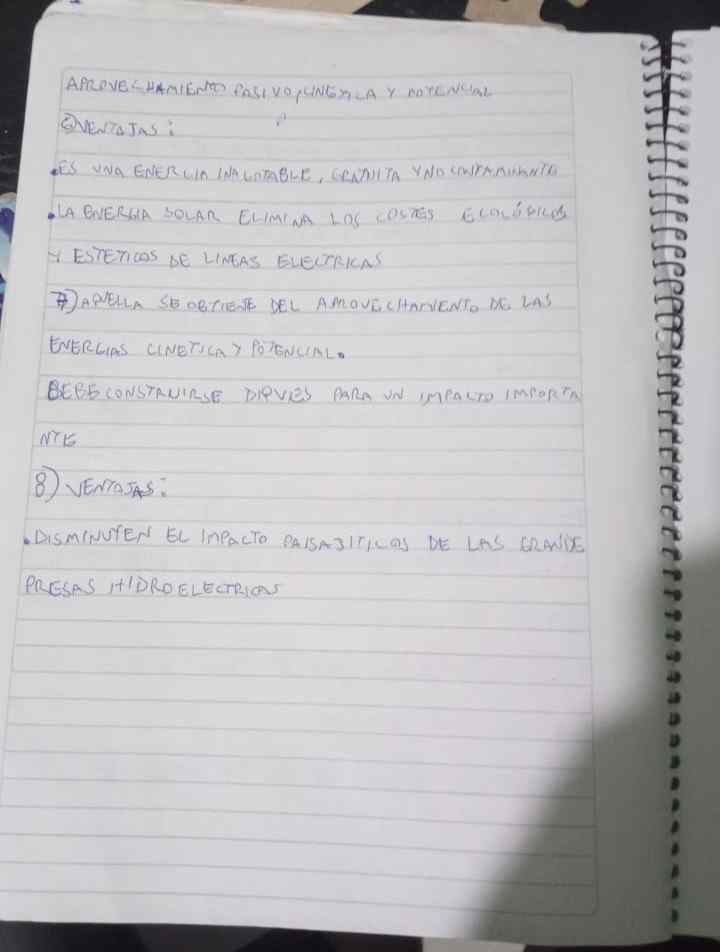 APROVECHAMIENTO PASIVO, CINETICA Y POTENCIAL
6) VENTAJAS:
• ES UNA ENERGIA INAGOTABLE, GRATUITA Y NO CONTAMINANTE
• LA ENERGIA SOLAR ELIMINA LOS COSTES ECOLÓGICOS
Y ESTETICOS DE LINEAS ELECTRICAS
7) AQUELLA SE OBTIENE DEL APROVECHAMIENTO DE LAS
ENERGIAS CINETICA Y POTENCIAL.
DEBE CONSTRUIRSE DIQUES PARA UN IMPACTO IMPORTA
NTE
8) VENTAJAS:
• DISMINUYEN EL IMPACTO PAISAJITICOS DE LAS GRANDE
PRESAS HIDROELECTRICAS